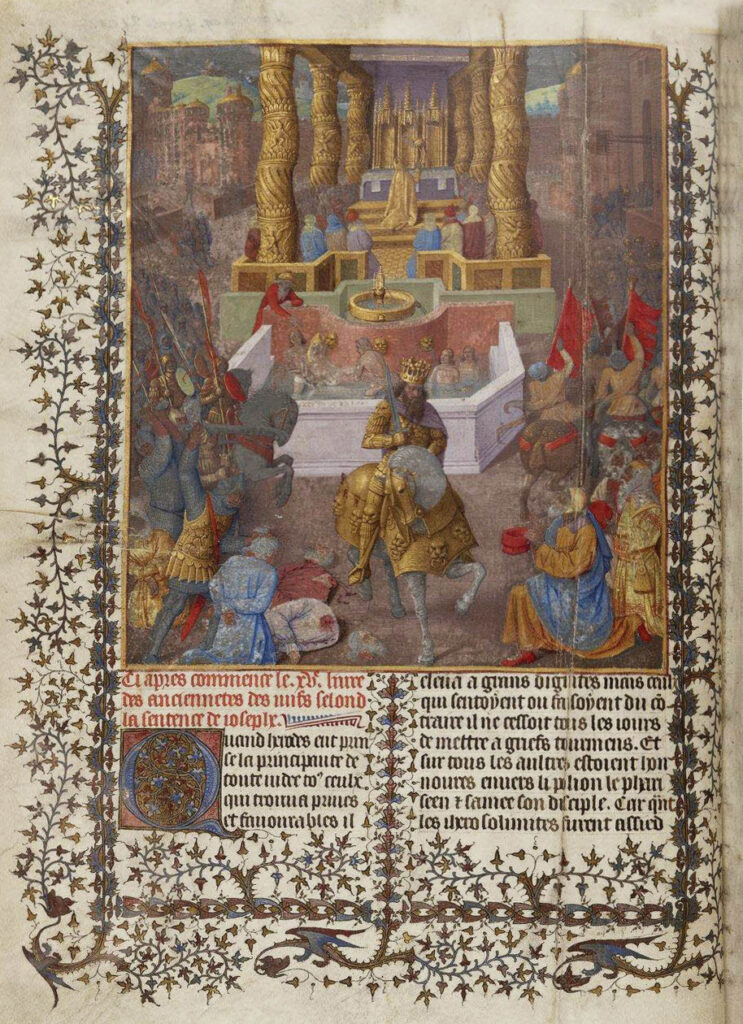 Ci apres commence le .xv. livre
des anciennetes des iuifs selond
la sentence de ioseph.
Quand herodes eut prin
se la principaute de
toute iudee to9 ceulx
qui trouua priues
et fauourables il
esleua a grans dignites mais ceulx
qui sentoyent ou faisoyent du co
traire il ne cessoit tous les iours
de mettre a griefs tourmens. Et
sur tous les aultres estoient hon
noures enuers li polion le phari
seen & samee son disciple. Car qnt
les ihero solimites furent assied